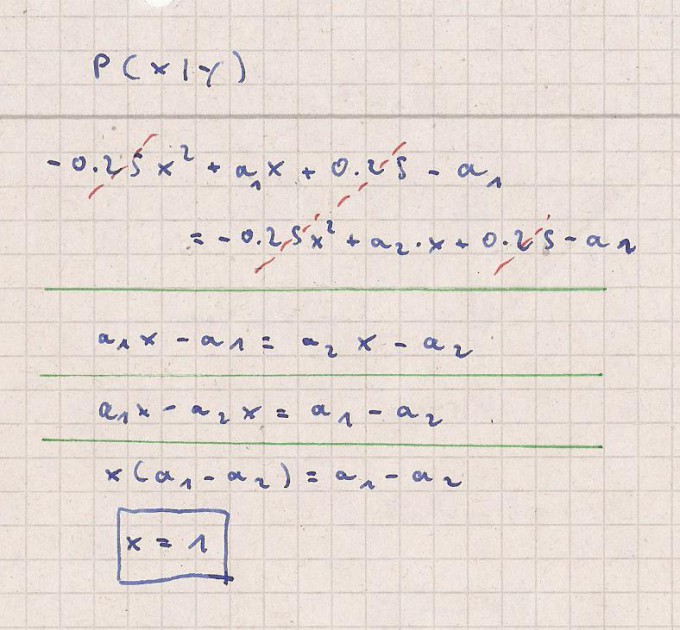 P(x|y)
-0.25x² + a₁x + 0.25 - a₁
= -0.25x² + a₂·x + 0.25 - a₂
a₁x - a₁ = a₂x - a₂
a₁x - a₂x = a₁ - a₂
x(a₁ - a₂) = a₁ - a₂
x = 1